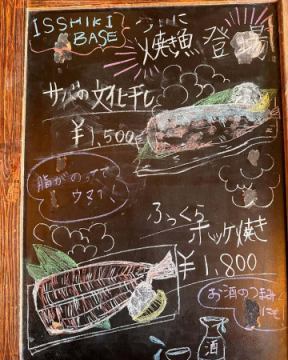 ISSHIKI
BASE
ついに
焼き魚 登場
サバの文化干し
¥1,500
脂がのってて
ウマイ!
ふっくら
ホッケ焼き
¥1,800
お酒のつまみ
にも
酒